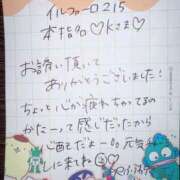 イルファーロ215
本指名♡Kさま♡
お誘い頂いて
ありがとうございました!
ちょっと心が疲れちゃってるの
かなーって感じだったから
心配だよー元気
しに来てね